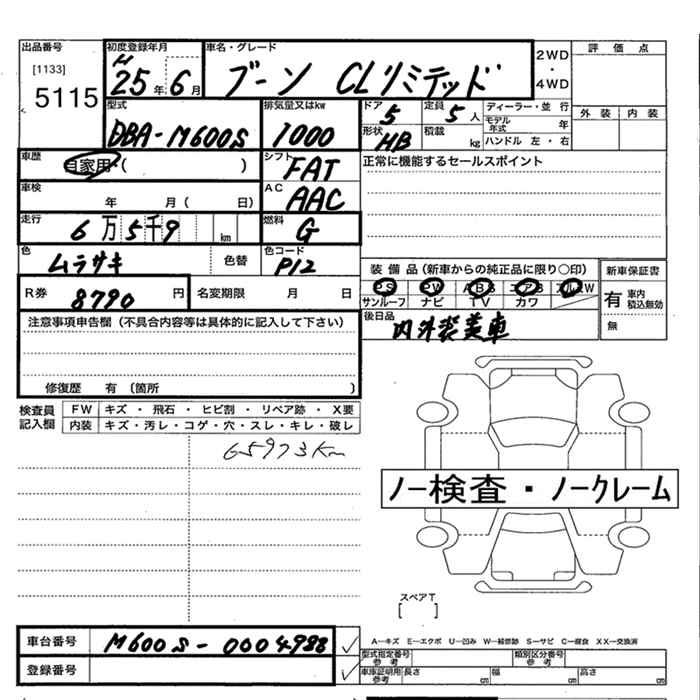 出品番号 初度登録年月 車名・グレード 2WD・4WD 評価点
[1133] H25年6月 ブーン CLリミテッド 外装 内装
5115
型式 排気量又はkw ドア 5 定員 5人 ディーラー・並行
DBA-M600S 1000 形状 HB 積載 kg モデル年式 年
ハンドル 左・右
車歴 自家用・( ) シフト FAT 正常に機能するセールスポイント
車検 年 月 ( 日) AC AAC
走行 6万5千9 km 燃料 G
色 ムラサキ 色替 色コード P12
装備品(新車からの純正品に限り〇印) 新車保証書
R券 8790円 名変期限 月 日 PS PW ABS エアB アルミW 有 車内積込無効
サンルーフ ナビ TV カワ 無
注意事項申告欄(不具合内容等は具体的に記入して下さい) 後日品 内外装美車
修復歴 有 (箇所 )
検査員記入欄 FW キズ・飛石・ヒビ割・リペア跡・X要
内装 キズ・汚レ・コゲ・穴・スレ・キレ・破レ
65973Km
ノー検査・ノークレーム
スペアT
[ ]
車台番号 M600S-0004988
A-キズ E-エクボ U-凹み W-補修跡 S-サビ C-腐食 XX-交換済
登録番号 型式指定番号 参考 類別区分番号 参考
車庫証明用 参考 長さ cm 幅 cm 高さ cm